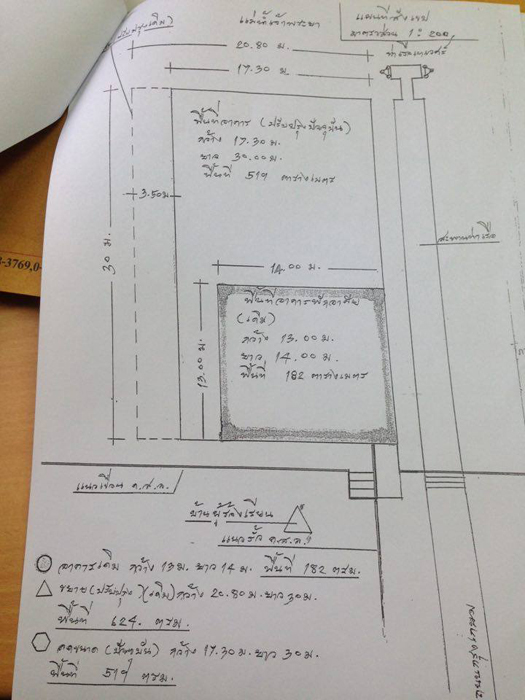 แม่น้ำเจ้าพระยา
แผนที่สังเขป
มาตราส่วน 1:200
20.80 ม.
17.30 ม.
ท่าเรือ
พื้นที่อาคาร (ปรับปรุงปัจจุบัน)
กว้าง 17.30 ม.
ยาว 30.00 ม.
พื้นที่ 519 ตารางเมตร
3.50 ม.
30 ม.
-3769,0-
สะพานท่าเรือ
14.00 ม.
13.00 ม.
พื้นที่อาคารพักอาศัย
(เดิม)
กว้าง 13.00 ม.
ยาว 14.00 ม.
พื้นที่ 182 ตารางเมตร
แนวเขื่อน ค.ส.ล.
บ้านผู้ร้องเรียน
แนวรั้ว ค.ส.ล.
อาคารเดิม กว้าง 13 ม. ยาว 14 ม. พื้นที่ 182 ตรม.
ขยาย (ปรับปรุง) (เดิม) กว้าง 20.80 ม. ยาว 30 ม.
พื้นที่ 624. ตรม.
ลดขนาด (ปัจจุบัน) กว้าง 17.30 ม. ยาว 30 ม.
พื้นที่ 519 ตรม.